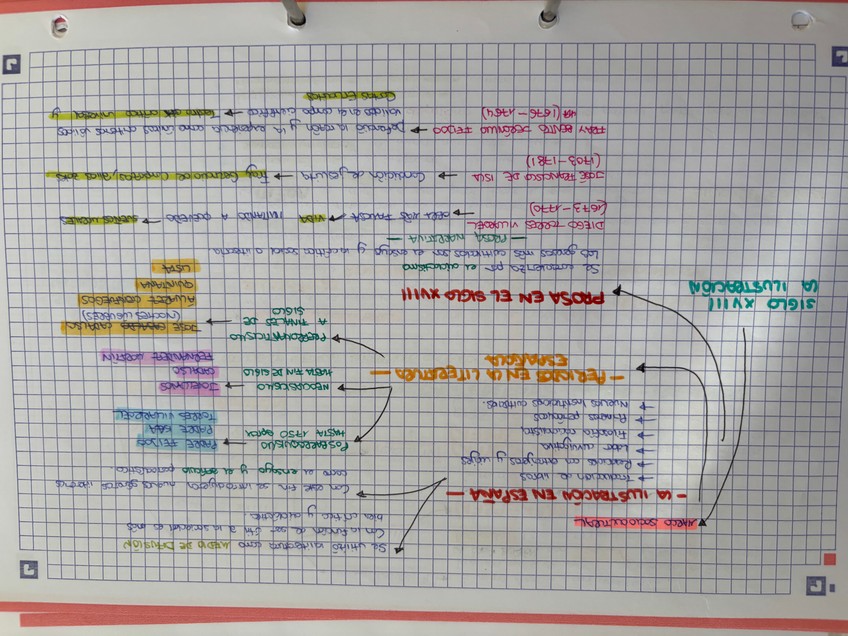 MARCO SOCIOCULTURAL
- LA ILUSTRACIÓN EN ESPAÑA -
→ Traducción de libros
→ Relaciones con extranjeros y viajes
→ Labor divulgativa
→ Filosofía racionalista
→ Prensa periódica
→ Nuevas instituciones culturales.
Se utilizó la literatura como MEDIO DE DIFUSIÓN
Con la función de ser útil a la sociedad es más
bien crítica y didáctica.
Con este fin se introdujeron nuevos géneros literarios
como el ensayo y el artículo periodístico.
SIGLO XVIII
LA ILUSTRACIÓN
- PERIODOS EN LA LITERATURA -
ESPAÑOLA
POSBARROQUISMO
HASTA 1750 aprox
PADRE FEIJOO
PADRE ISLA
TORRES VILLARROEL
NEOCLASICISMO
HASTA FIN DE SIGLO
JOVELLANOS
CADALSO
FERNÁNDEZ MORATÍN
PRERROMANTICISMO
A FINALES DE
SIGLO
JOSÉ CADALSO
(NOCHES LÚGUBRES)
ÁLVAREZ CIENFUEGOS
QUINTANA
LISTA
PROSA EN EL SIGLO XVIII
Se caracteriza por el didactismo
Los géneros más cultivados son el ensayo y la crítica social o literaria
- PROSA NARRATIVA -
DIEGO TORRES VILLARROEL
(1673-1770)
→ OBRA MÁS FAMOSA → VIDA IMITANDO A QUEVEDO → SUEÑOS MORALES
JOSÉ FRANCISCO DE ISLA
(1703-1781)
→ Condición de jesuita → Fray Gerundio de Campazas, alias Zotes
FRAY BENITO JERÓNIMO FEIJOO
(1676-1764)
→ Defendió la razón y la experiencia como únicos criterios válidos
válidos en el campo científico → Teatro crítico universal y
Cartas Eruditas